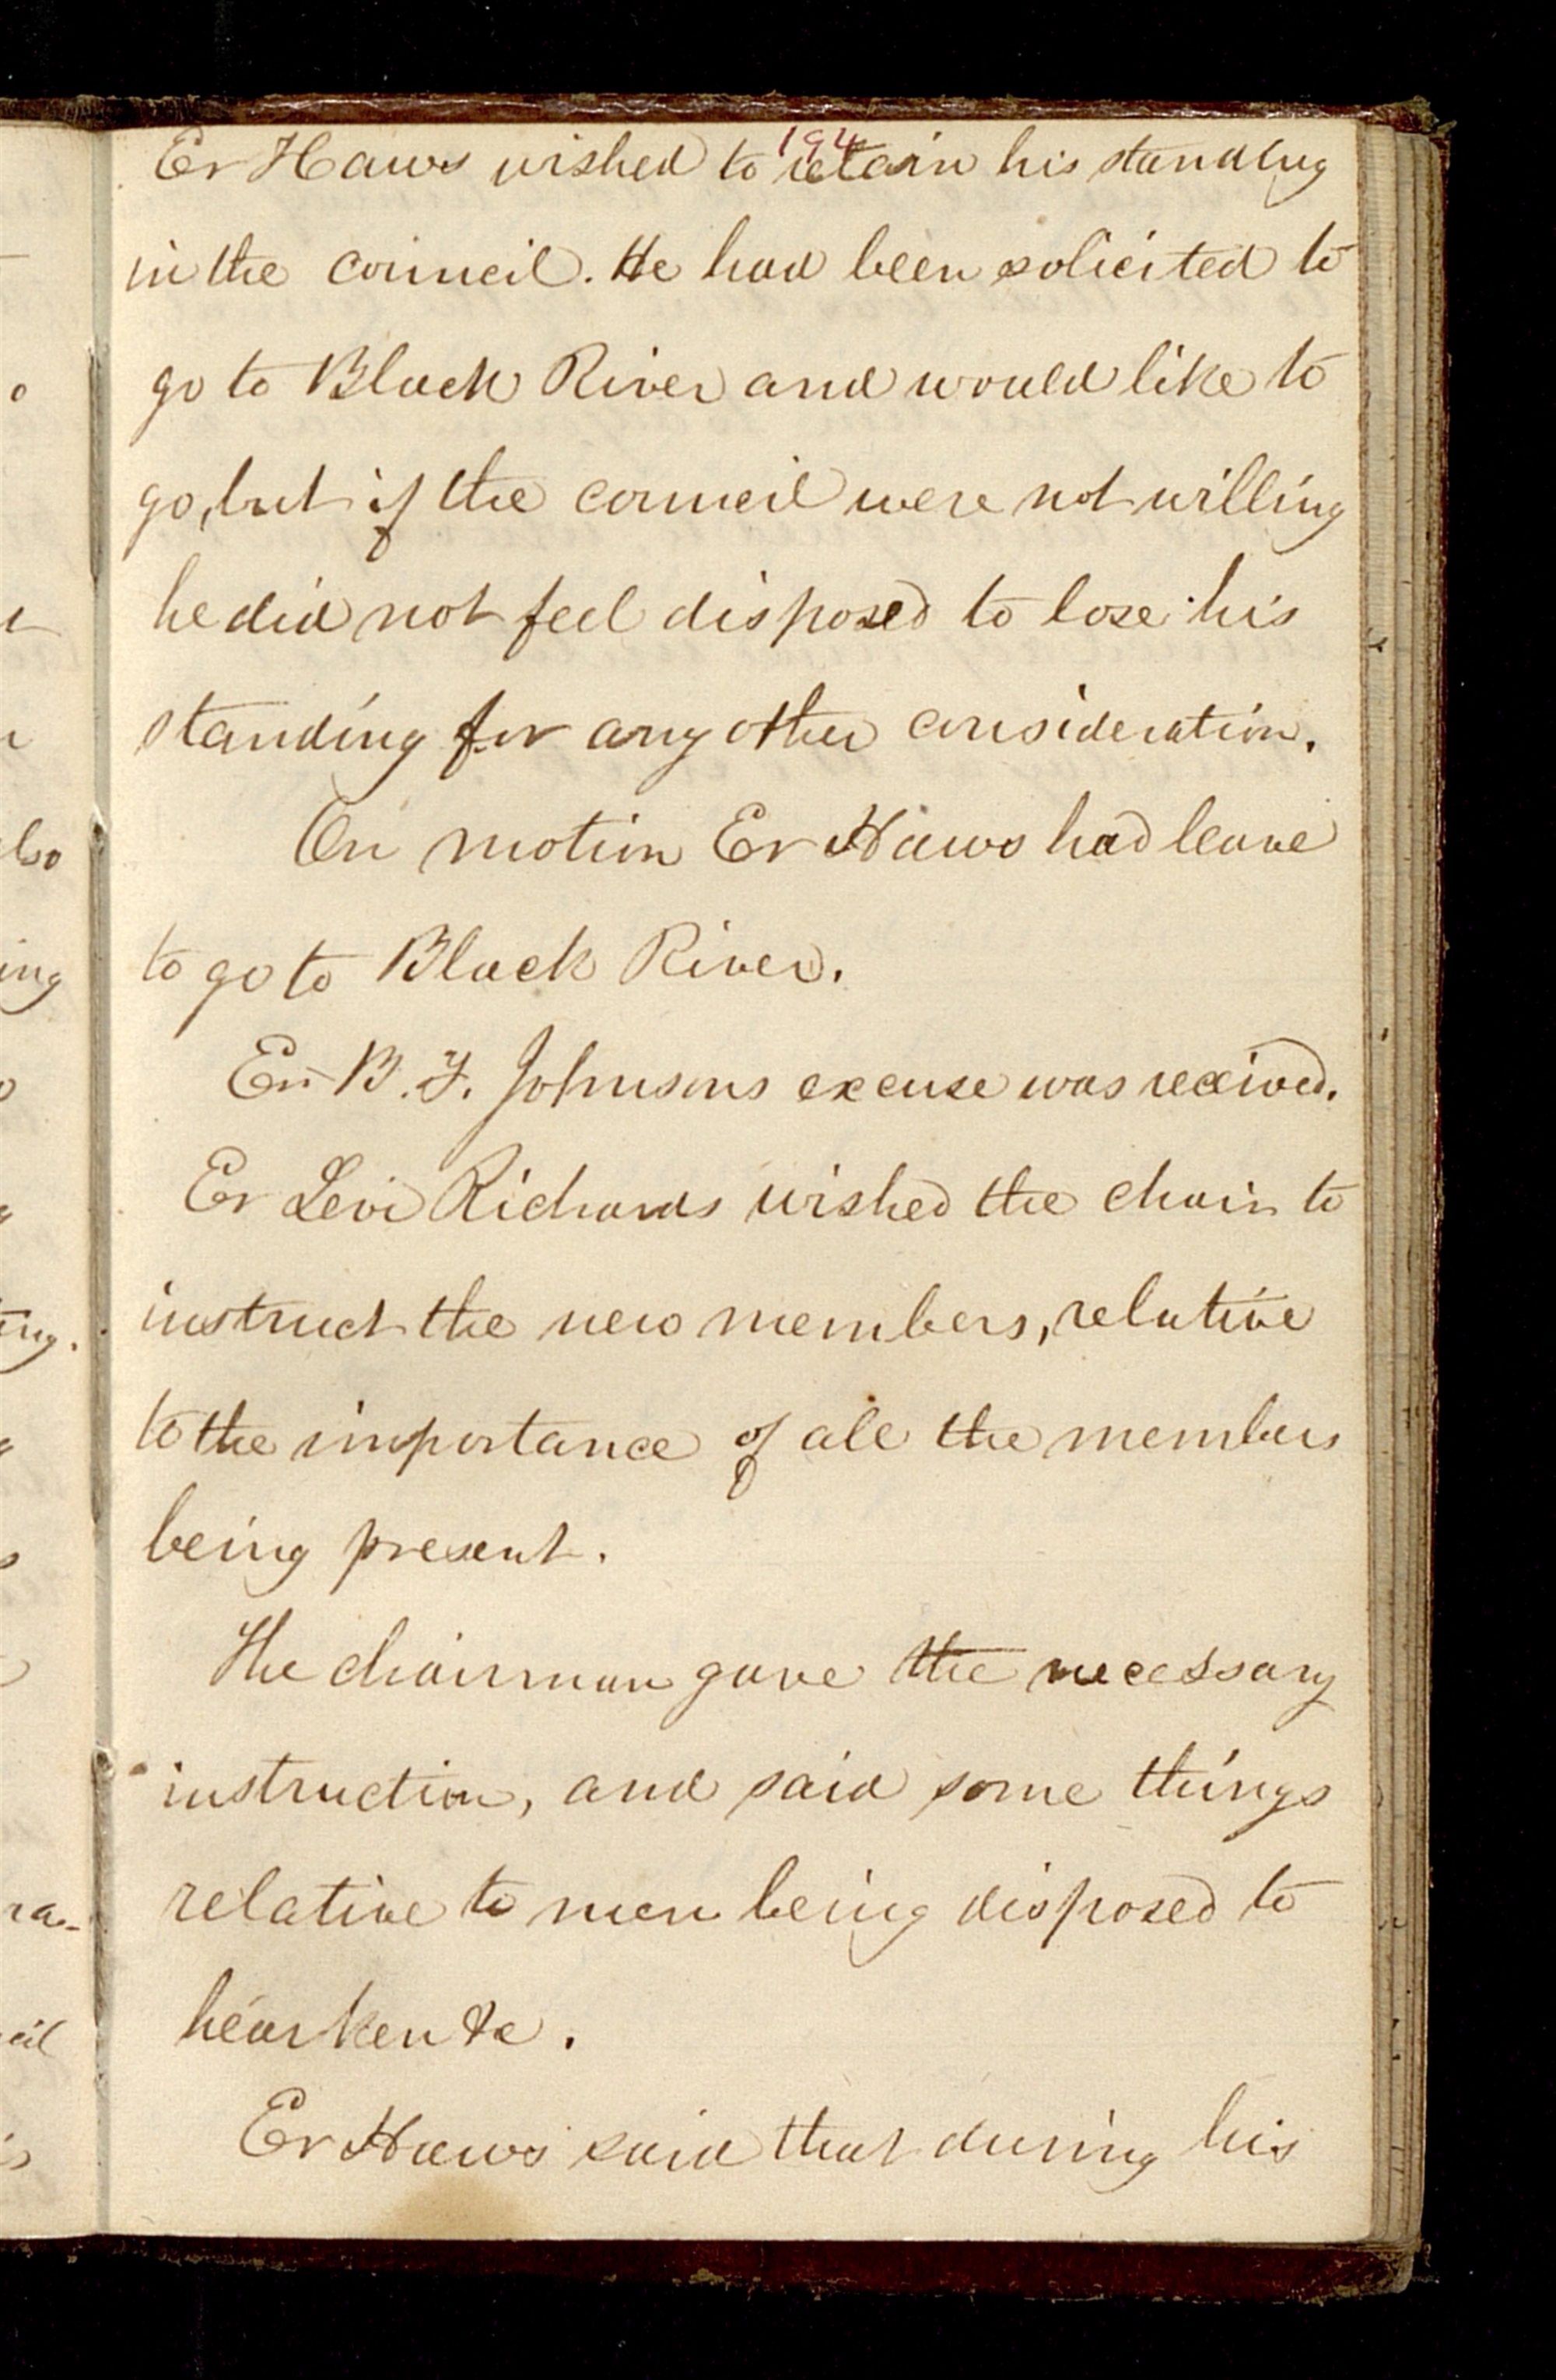 194
Er Haws wished to retain his standing
in the council. He had been solicited to
go to Black River and would like to
go, but if the council were not willing
he did not feel disposed to lose his
standing for any other consideration.
On motion Er Haws had leave
to go to Black River.
Er B. F. Johnsons excuse was received.
Er Levi Richards wished the chair to
instruct the new members, relative
to the importance of all the members
being present.
The chairman gave the necessary
instruction, and said some things
relative to men being disposed to
hearken &c.
Er Haws said that during his